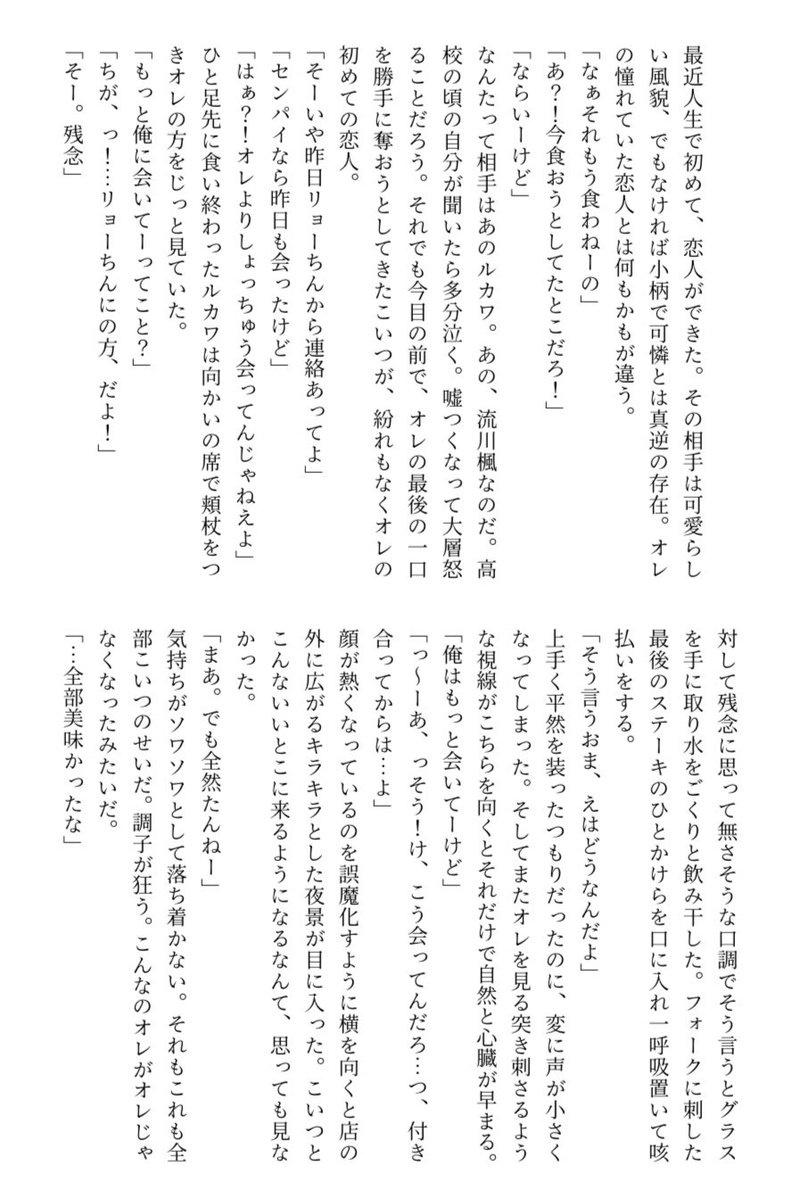 最近人生で初めて、恋人ができた。その相手は可愛らし
い風貌、でもなければ小柄で可憐とは真逆の存在。オレ
の憧れていた恋人とは何もかもが違う。
「なぁそれもう食わねーの」
「あ?!今食おうとしてたとこだろ!」
「ならいーけど」
なんたって相手はあのルカワ。あの、流川楓なのだ。高
校の頃の自分が聞いたら多分泣く。嘘つくなって大層怒
ることだろう。それでも今目の前で、オレの最後の一口
を勝手に奪おうとしてきたこいつが、紛れもなくオレの
初めての恋人。
「そーいや昨日リョーちんから連絡あってよ」
「センパイなら昨日も会ったけど」
「はぁ?!オレよりしょっちゅう会ってんじゃねえよ」
ひと足先に食い終わったルカワは向かいの席で頬杖をつ
きオレの方をじっと見ていた。
「もっと俺に会いてーってこと?」
「ちが、っ!…リョーちんにの方、だよ!」
「そー。残念」
対して残念に思って無さそうな口調でそう言うとグラス
を手に取り水をごくりと飲み干した。フォークに刺した
最後のステーキのひとかけらを口に入れ一呼吸置いて咳
払いをする。
「そう言うおま、えはどうなんだよ」
上手く平然を装ったつもりだったのに、変に声が小さく
なってしまった。そしてまたオレを見る突き刺さるよう
な視線がこちらを向くとそれだけで自然と心臓が早まる。
「俺はもっと会いてーけど」
「っ〜ーあ、っそう!け、こう会ってんだろ…つ、付き
合ってからは…よ」
顔が熱くなっているのを誤魔化すように横を向くと店の
外に広がるキラキラとした夜景が目に入った。こいつと
こんないいとこに来るようになるなんて、思っても見な
かった。
「まあ。でも全然たんねー」
気持ちがソワソワとして落ち着かない。それもこれも全
部こいつのせいだ。調子が狂う。こんなのオレがオレじゃ
なくなったみたいだ。
「…全部美味かったな」